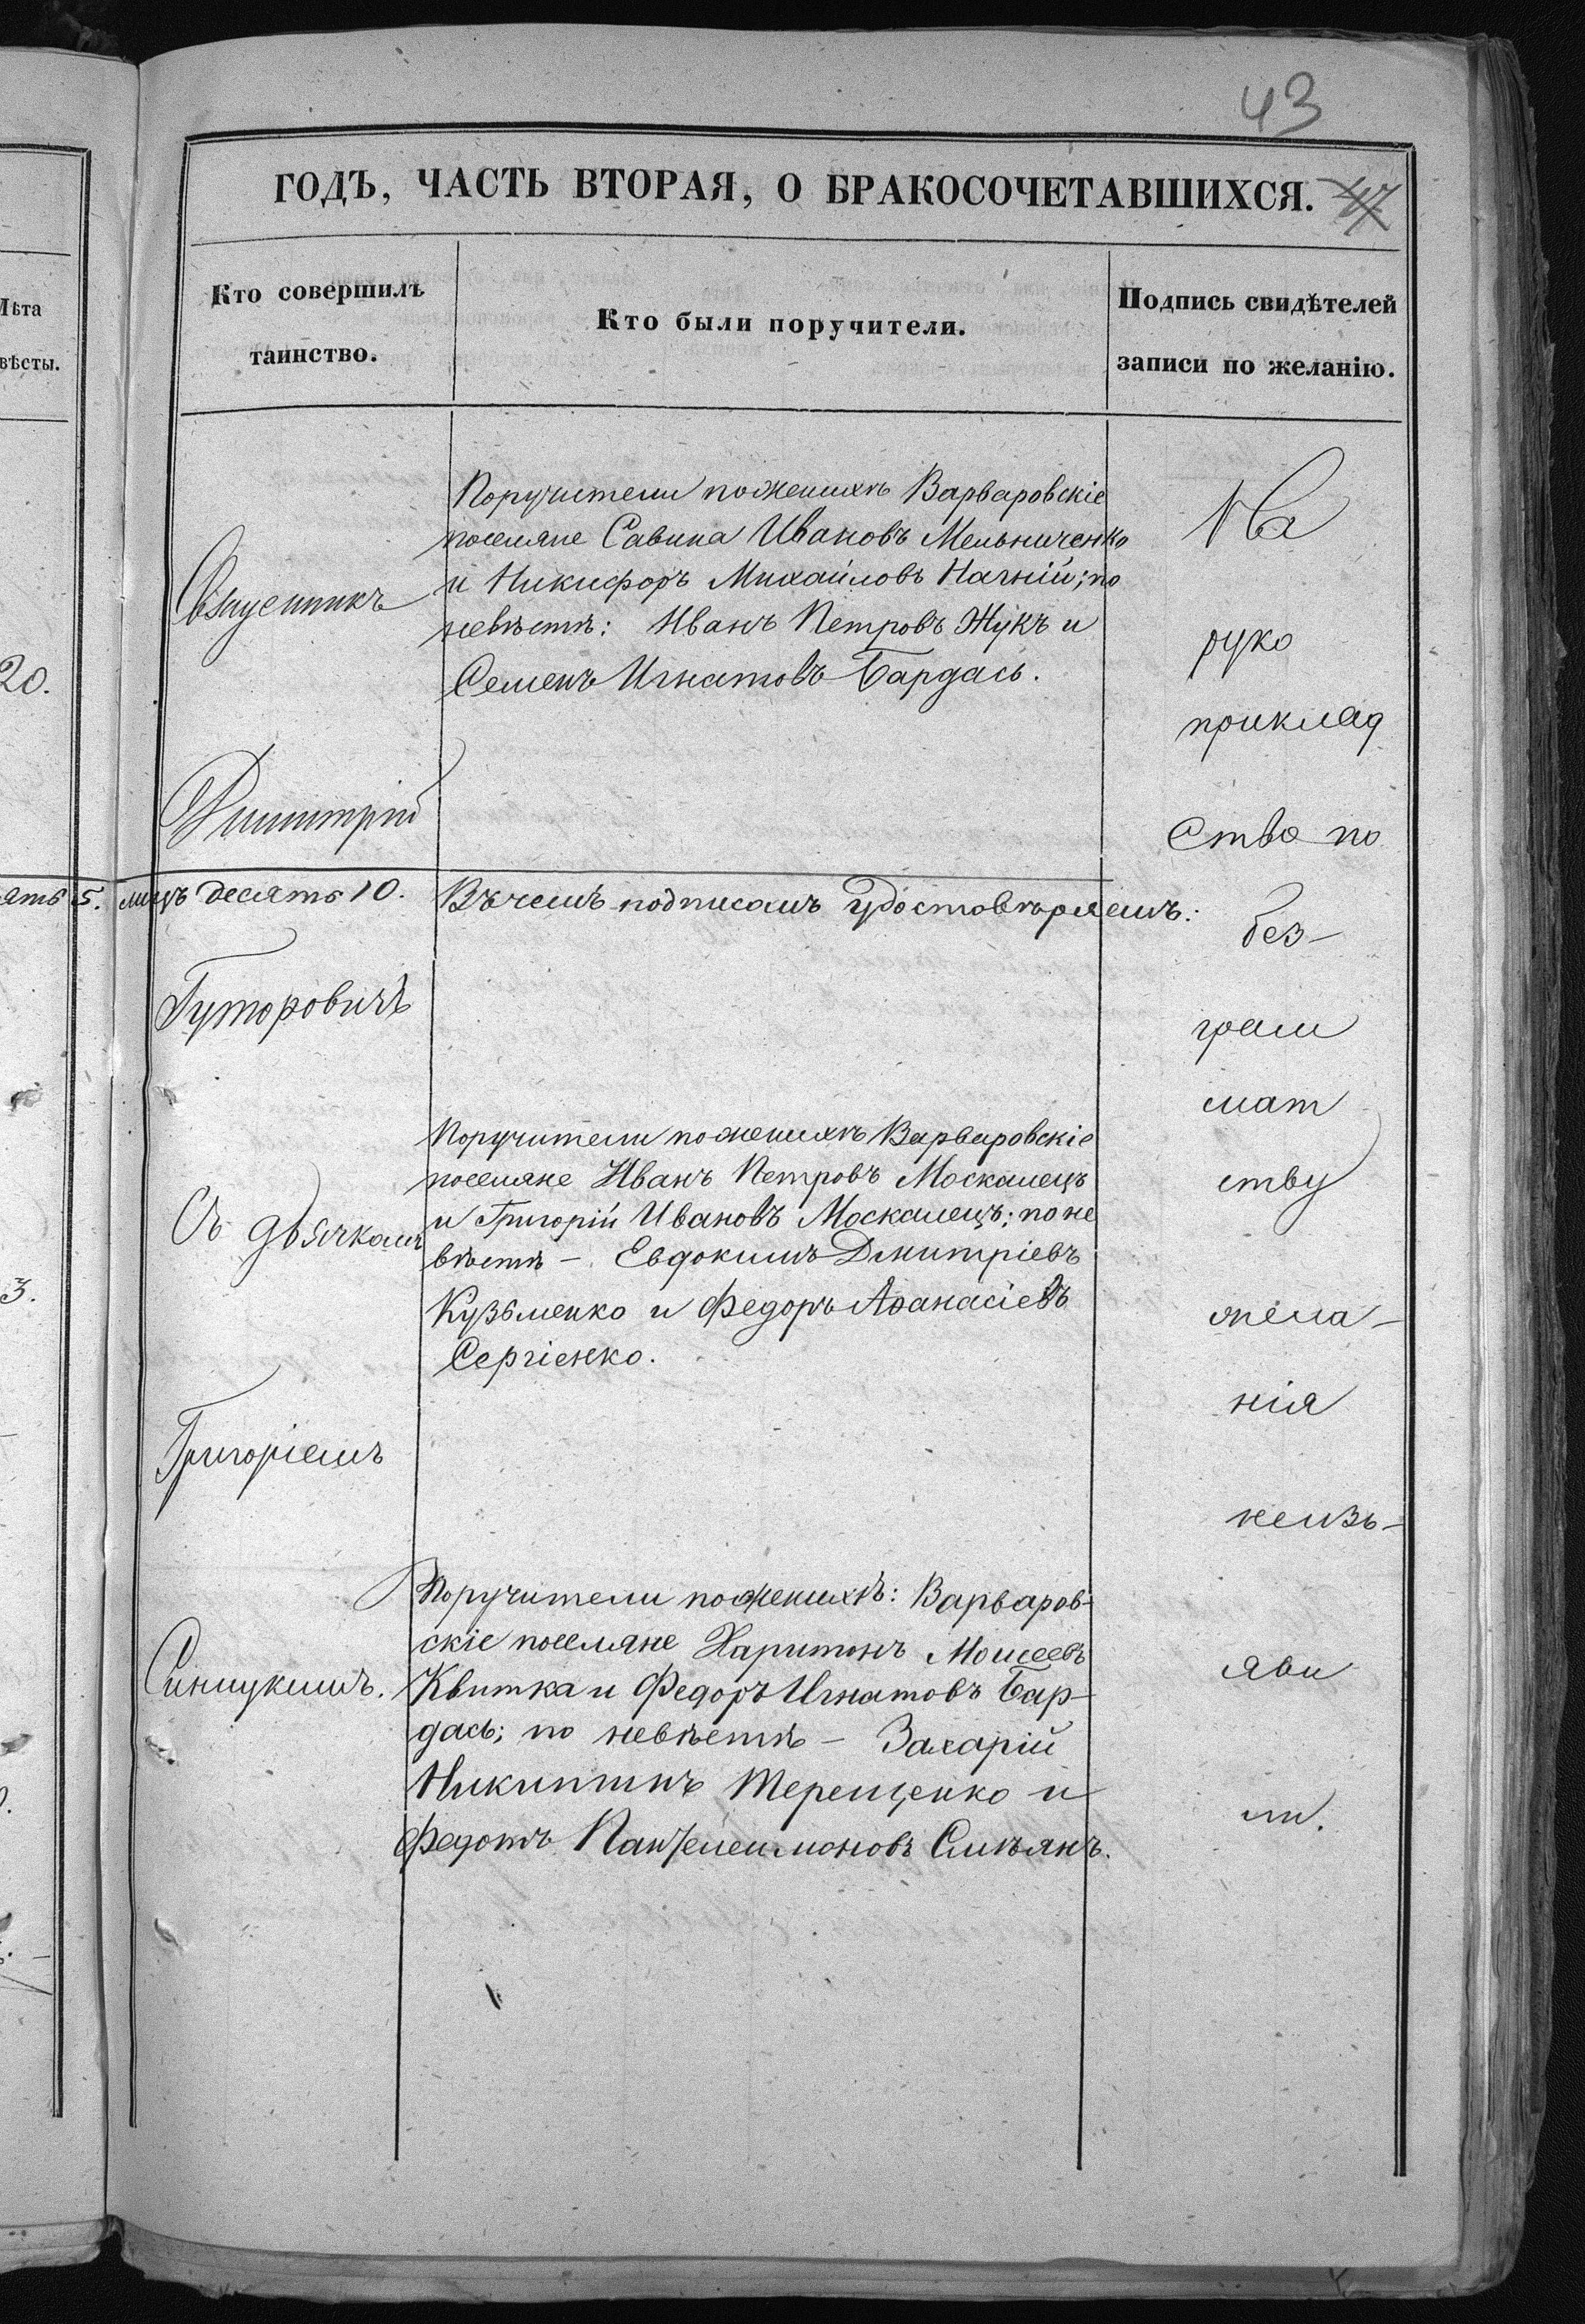 43
ГОДЪ, ЧАСТЬ ВТОРАЯ, О БРАКОСОЧЕТАВШИХСЯ. 47
Лѣта
вѣсты.
20.
ять 5.
3.
Кто совершилъ
таинство.
Священникъ
Димитрій
лицъ десять 10.
Гуторовичъ
Съ дьячкомъ
Григоріемъ
Синицкимъ.
Кто были поручители.
Поручители по женихѣ Варваровскіе
поселяне Савина Ивановъ Мельниченко
и Никифоръ Михайловъ Начній; по
невѣстѣ: Иванъ Петровъ Жукъ и
Семенъ Игнатовъ Бардась.
Въ чемъ подписомъ удостовѣряемъ:
Поручители по женихѣ Варваровскіе
поселяне Иванъ Петровъ Москалецъ
и Григорій Ивановъ Москалецъ; по не
вѣстѣ – Евдокимъ Дмитріевъ
Кузьменко и Федоръ Аѳанасіевъ
Сергіенко.
Поручители по женихѣ: Варваров-
скіе поселяне Харитонъ Моисеевъ
Квитка и Федоръ Игнатовъ Бар-
дась; по невѣстѣ – Захарій
Никитинъ Терещенко и
Федотъ Пантелеимоновъ Смѣянъ.
Подпись свидѣтелей
записи по желанію.
На
руко
приклад
ство по
без-
грам
мат
ству
жела-
нія
неизъ-
яви
ли.